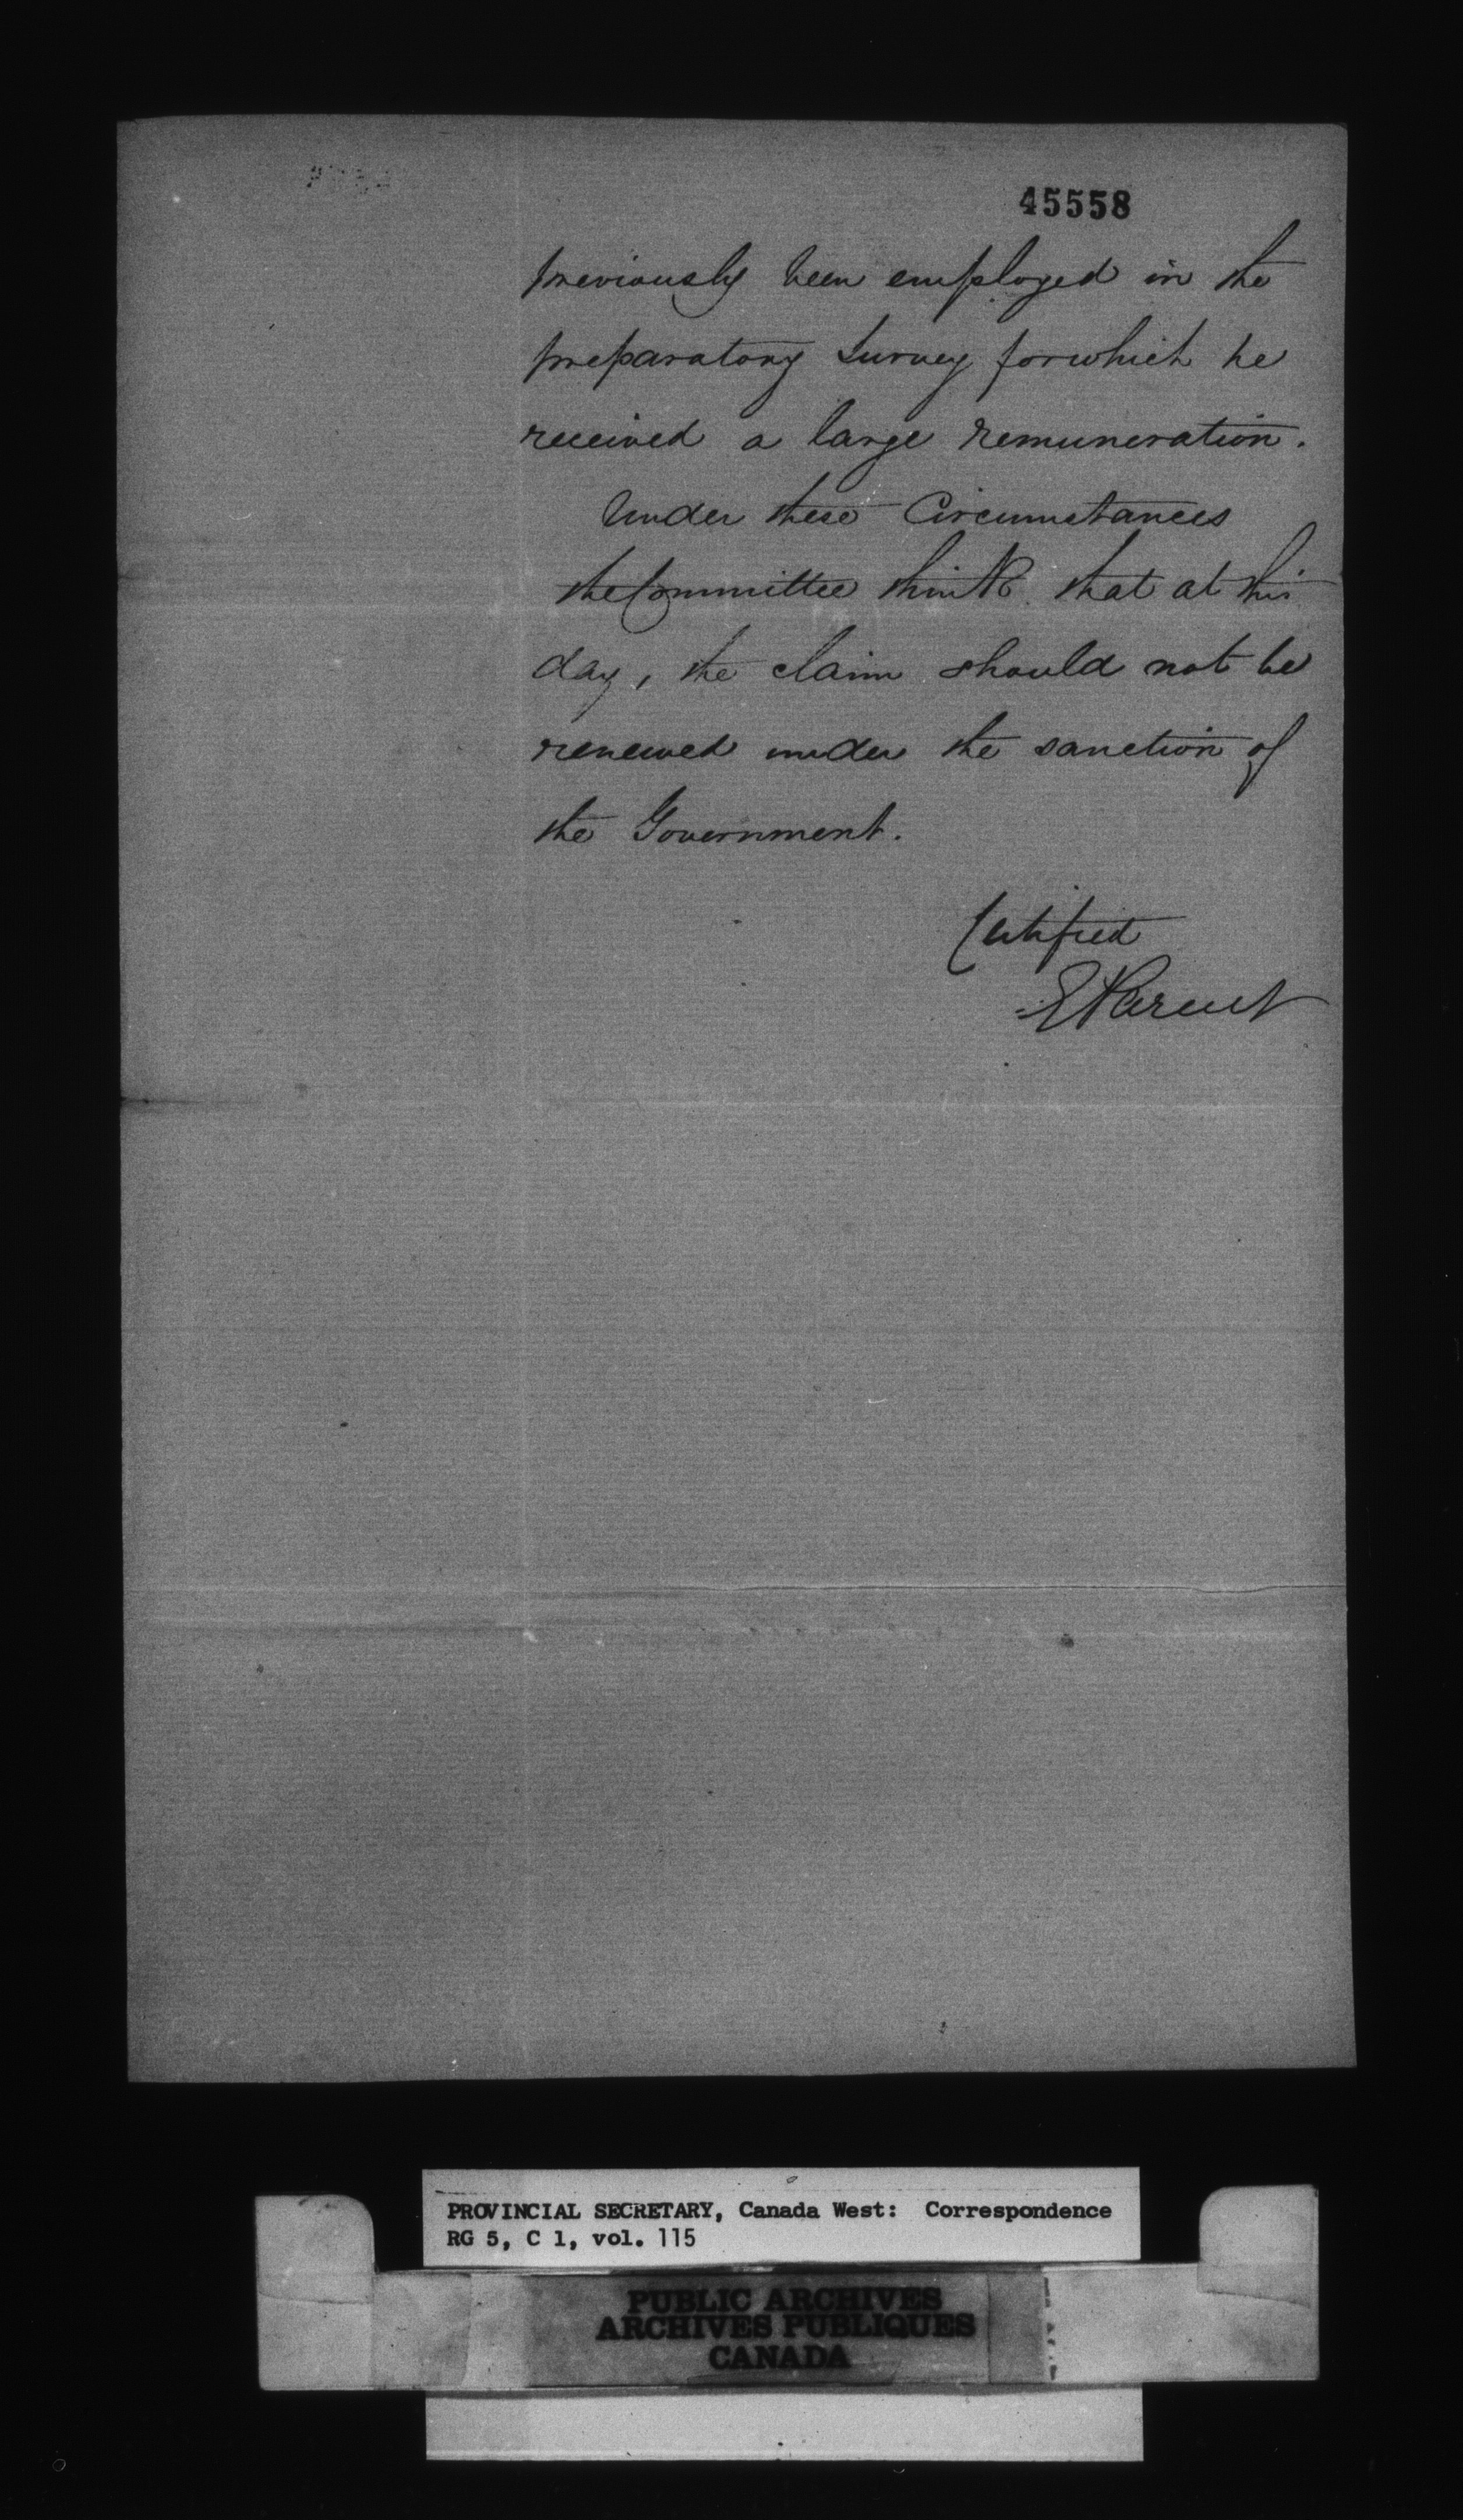 45558
previously been employed in the
preparatory Survey for which he
received a large remuneration.
Under these Circumstances
the Committee think that at this
day, the claim should not be
renewed under the sanction of
the Government.
Certified
E Parent
PROVINCIAL SECRETARY, Canada West: Correspondence
RG 5, C 1, vol. 115
PUBLIC ARCHIVES
ARCHIVES PUBLIQUES
CANADA